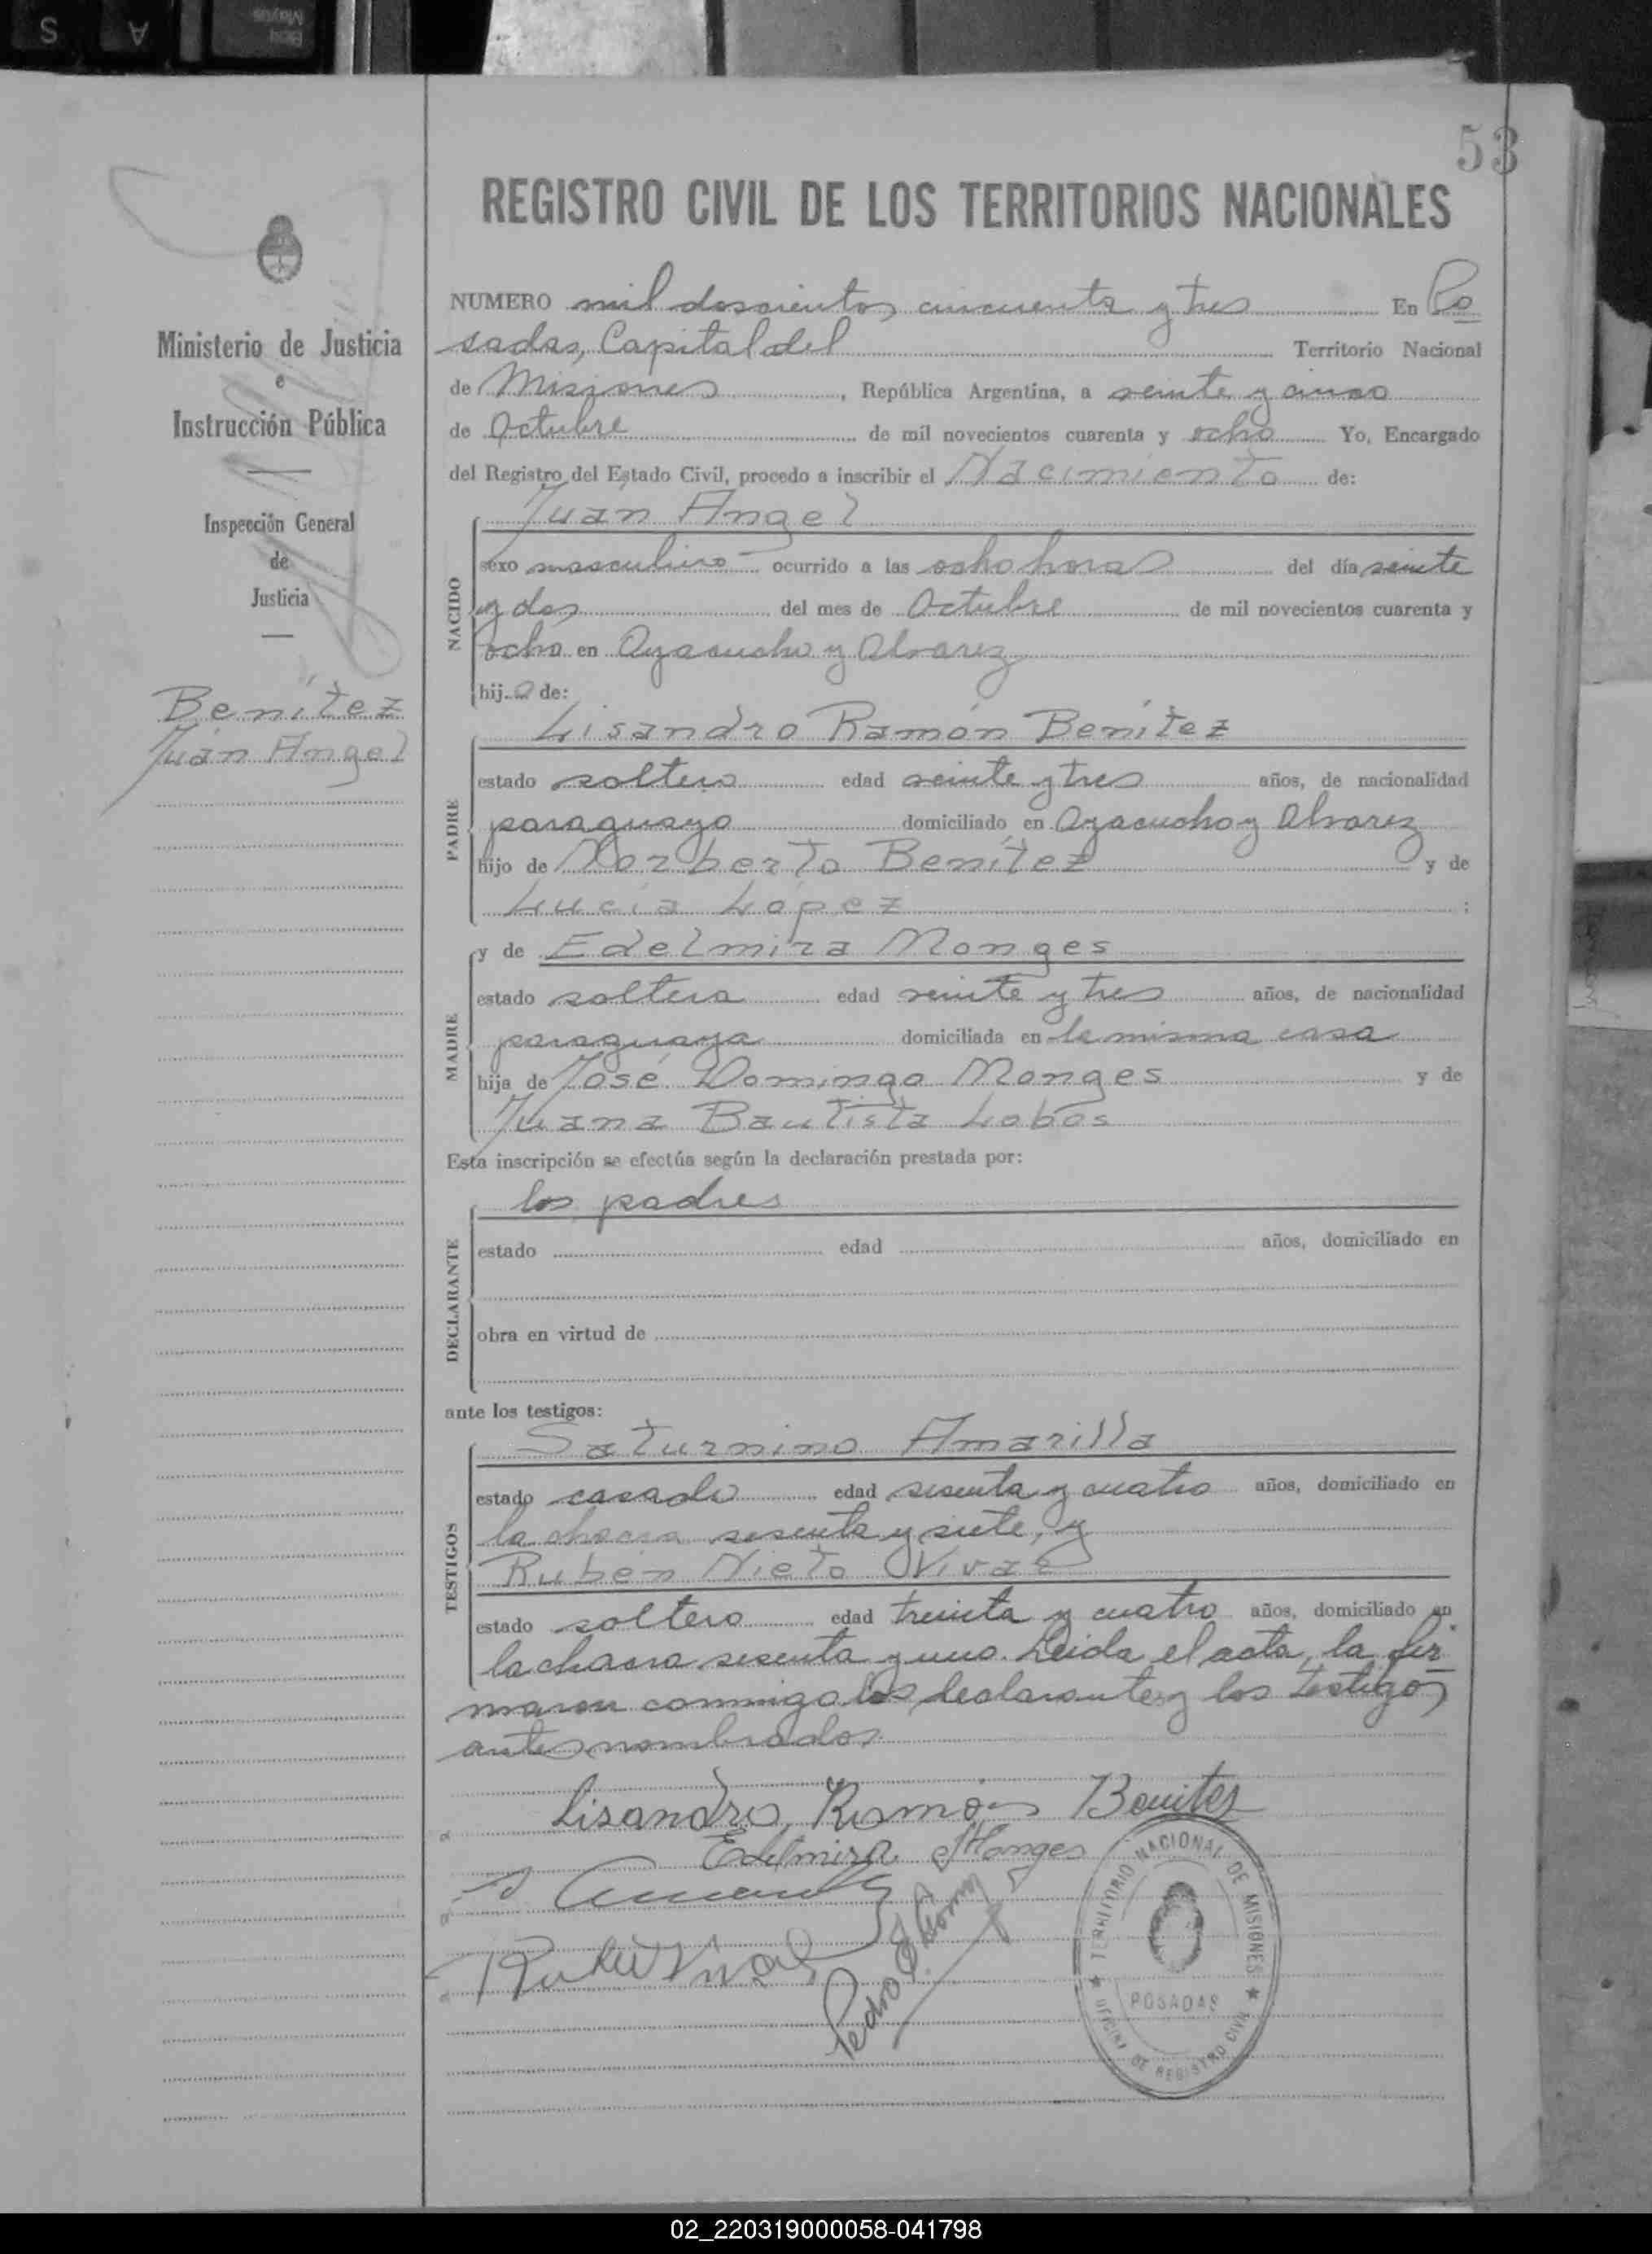 53
REGISTRO CIVIL DE LOS TERRITORIOS NACIONALES
Ministerio de Justicia
e
Instrucción Pública
Inspección General
de
Justicia
Benítez
Juan Angel
NUMERO mil doscientos cincuenta y tres En Po
sadas, Capital del Territorio Nacional
de Misiones, República Argentina, a veinte y cinco
de Octubre de mil novecientos cuarenta y ocho Yo, Encargado
del Registro del Estado Civil, procedo a inscribir el Nacimiento de:
NACIDO
Juan Angel
sexo masculino ocurrido a las ocho horas del día veinte
y dos del mes de Octubre de mil novecientos cuarenta y
ocho en Ayacucho y Alvarez
hijo de:
PADRE
Lisandro Ramón Benítez
estado soltero edad veinte y tres años, de nacionalidad
paraguayo domiciliado en Ayacucho y Alvarez
hijo de Norberto Benítez y de
Lucía López ;
MADRE
y de Edelmira Monges
estado soltera edad veinte y tres años, de nacionalidad
paraguaya domiciliada en la misma casa
hija de José Domingo Monges y de
Juana Bautista Lobos
Esta inscripción se efectúa según la declaración prestada por:
DECLARANTE
los padres
estado edad años, domiciliado en
obra en virtud de
ante los testigos:
TESTIGOS
Saturnino Amarilla
estado casado edad sesenta y cuatro años, domiciliado en
la chacra sesenta y siete, y
Rubén Nieto Vivas
estado soltero edad treinta y cuatro años, domiciliado en
la chacra sesenta y uno. Leída el acta, la fir
maron conmigo los declarantes y los testigos
antes nombrados.
Lisandro Ramón Benites
Edelmira Monges
Pedro
TERRITORIO NACIONAL DE MISIONES
POSADAS
OFICINA DE REGISTRO CIVIL
02_220319000058-041798